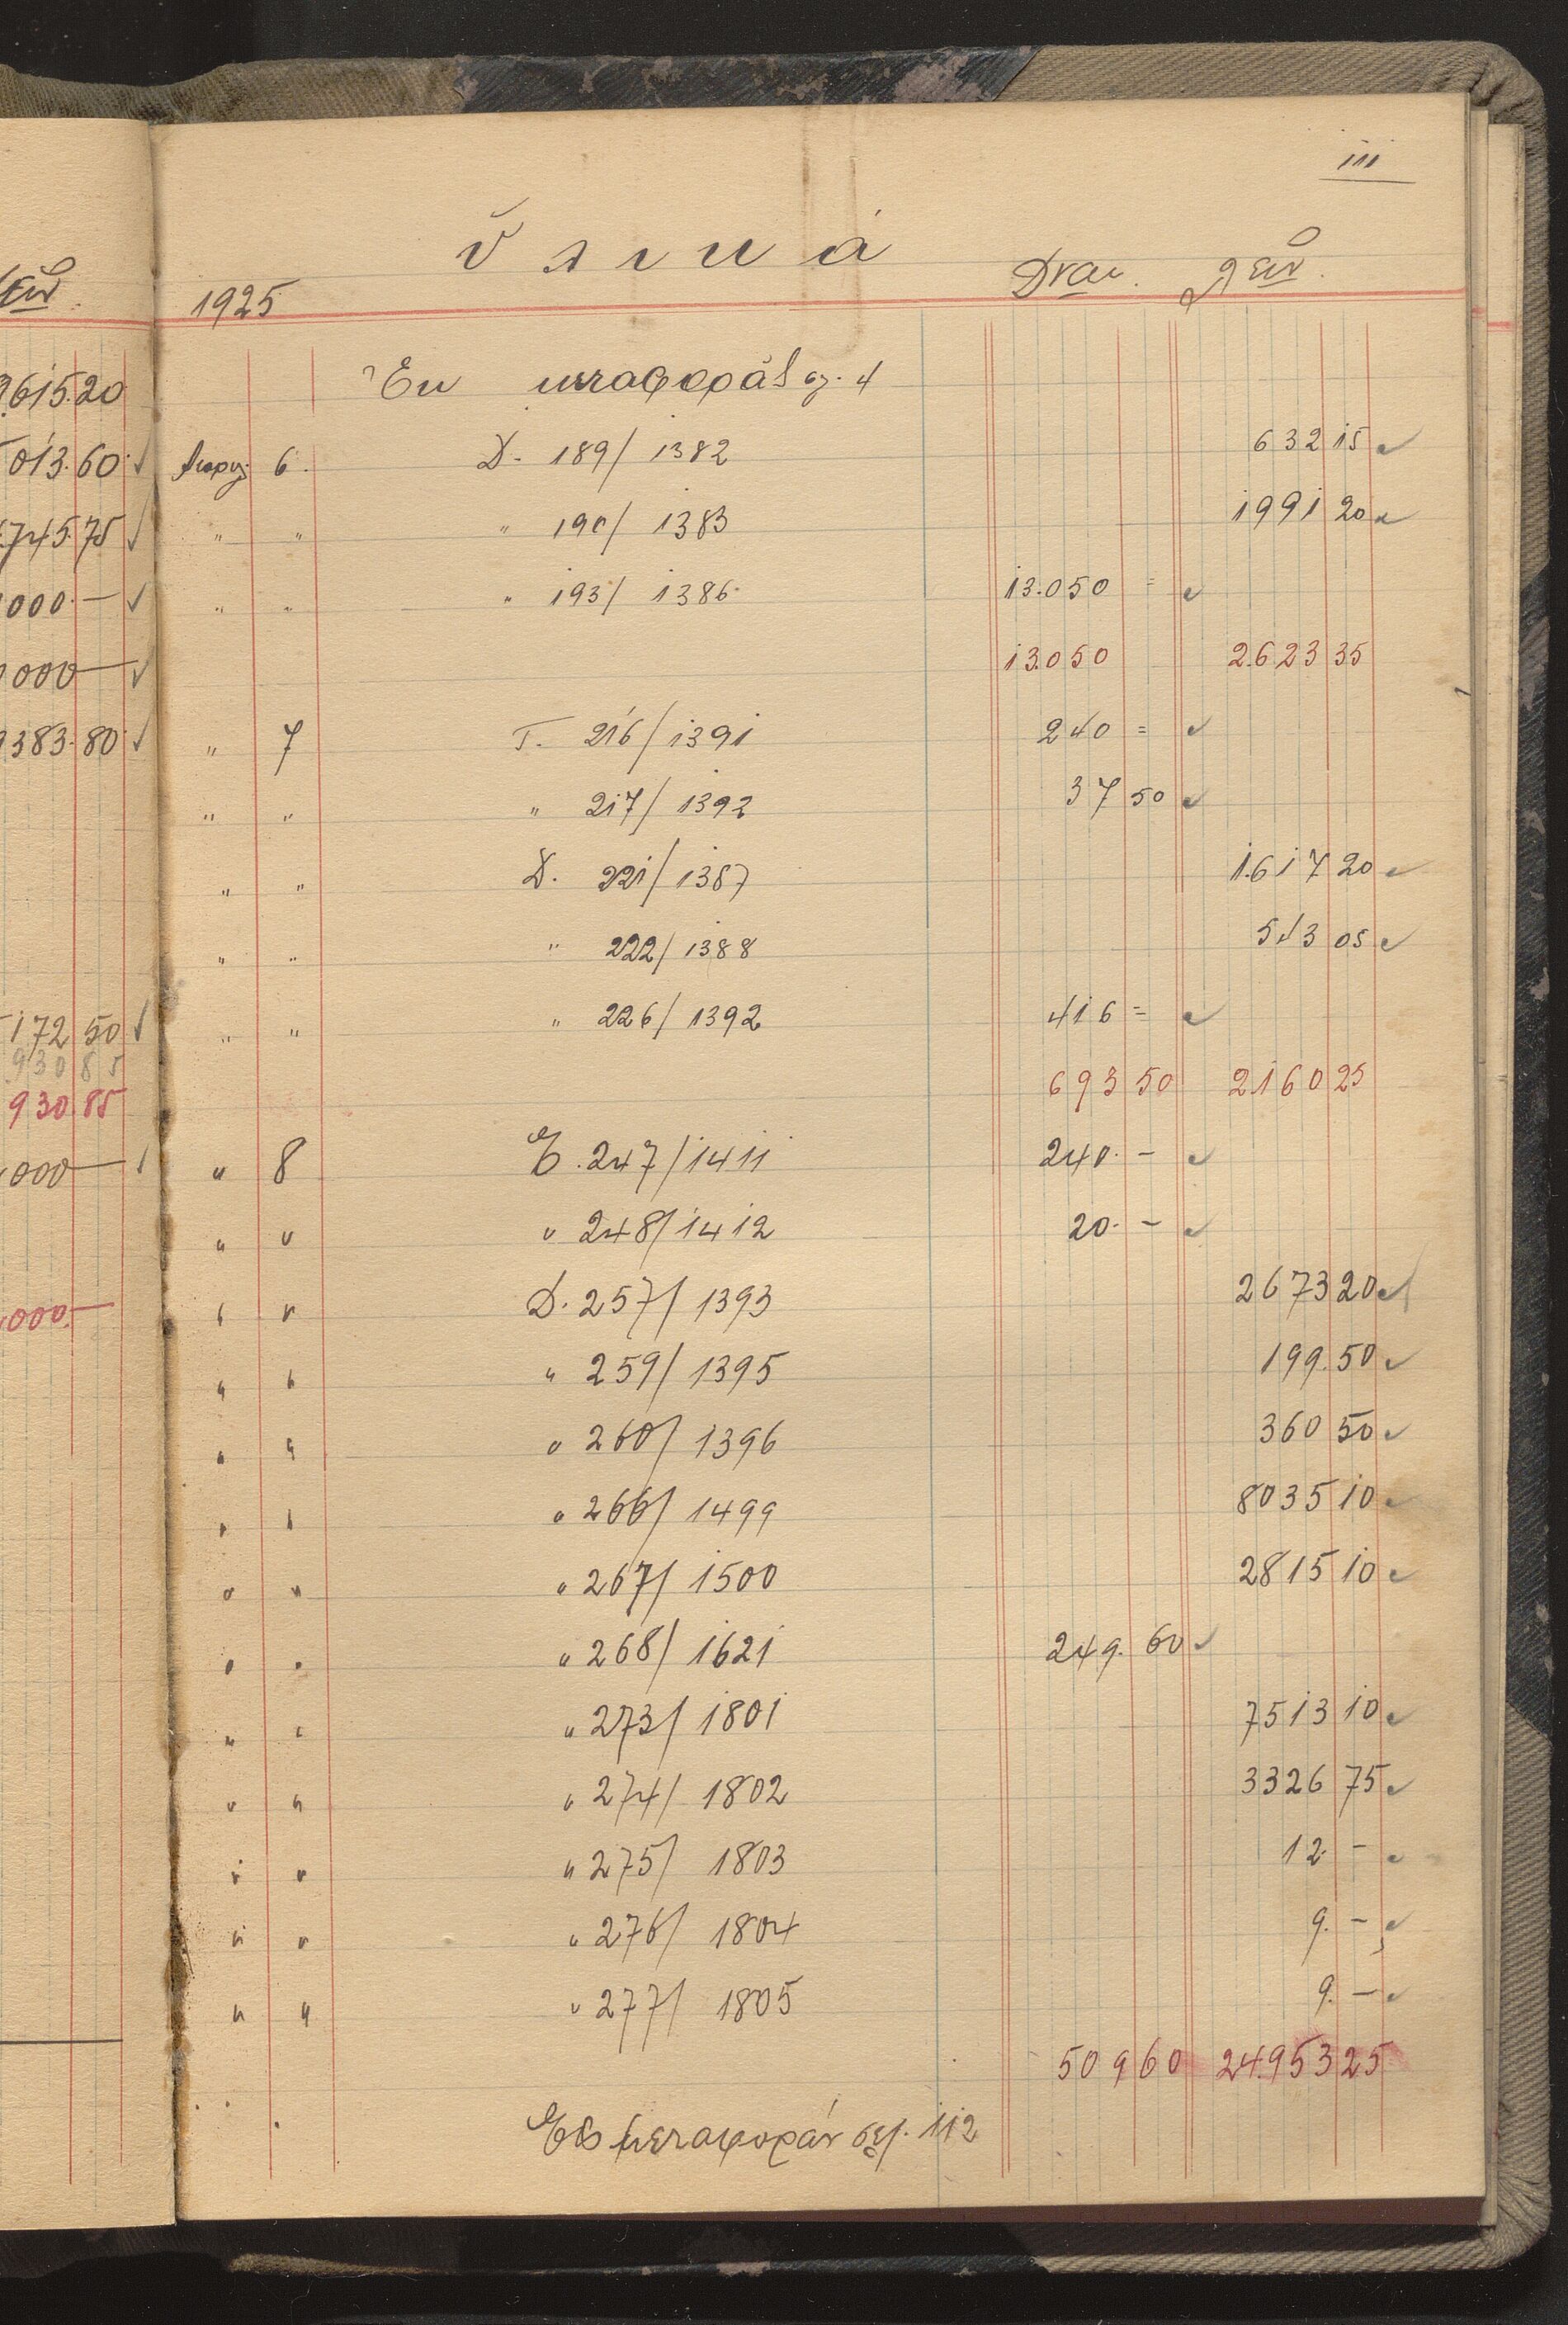 111
ὑλικά
1925 Δραχ. Λεπ.
Ἐκ μεταφορᾶς σελ. 4
Απριλ 6. Δ. 189/ 1382 632 15 ✓
" " " 190/ 1383 1991 20 ✓
" " " 193/ 1386 13.050 = ✓
13.050 2.623 35
" 7 Τ. 216/1391 240 = ✓
" " " 217/ 1392 37 50 ✓
" " Δ. 221/ 1387 1.617 20 ✓
" " " 222/ 1388 543 05 ✓
" " " 226/ 1392 416 = ✓
693 50 2160 25
" 8 Τ. 247/1411 240. - ✓
" " " 248/1412 20. - ✓
" " Δ. 257/ 1393 2673 20 ✓
" " " 259/ 1395 199.50 ✓
" " " 260/ 1396 360 50 ✓
" " " 266/ 1499 8035 10 ✓
" " " 267/ 1500 2815 10 ✓
" " " 268/ 1621 249. 60 ✓
" " " 273/ 1801 7513 10 ✓
" " " 274/ 1802 3326 75 ✓
" " " 275/ 1803 12. - ✓
" " " 276/ 1804 9. - ✓
" " " 277/ 1805 9. - ✓
509 60 24.953 25
Εἰς μεταφοράν σελ. 112
615.20
013.60 ✓
745.75 ✓
000.— ✓
000— ✓
383.80 ✓
172 50 ✓
930 85
930 85
000—
000.—